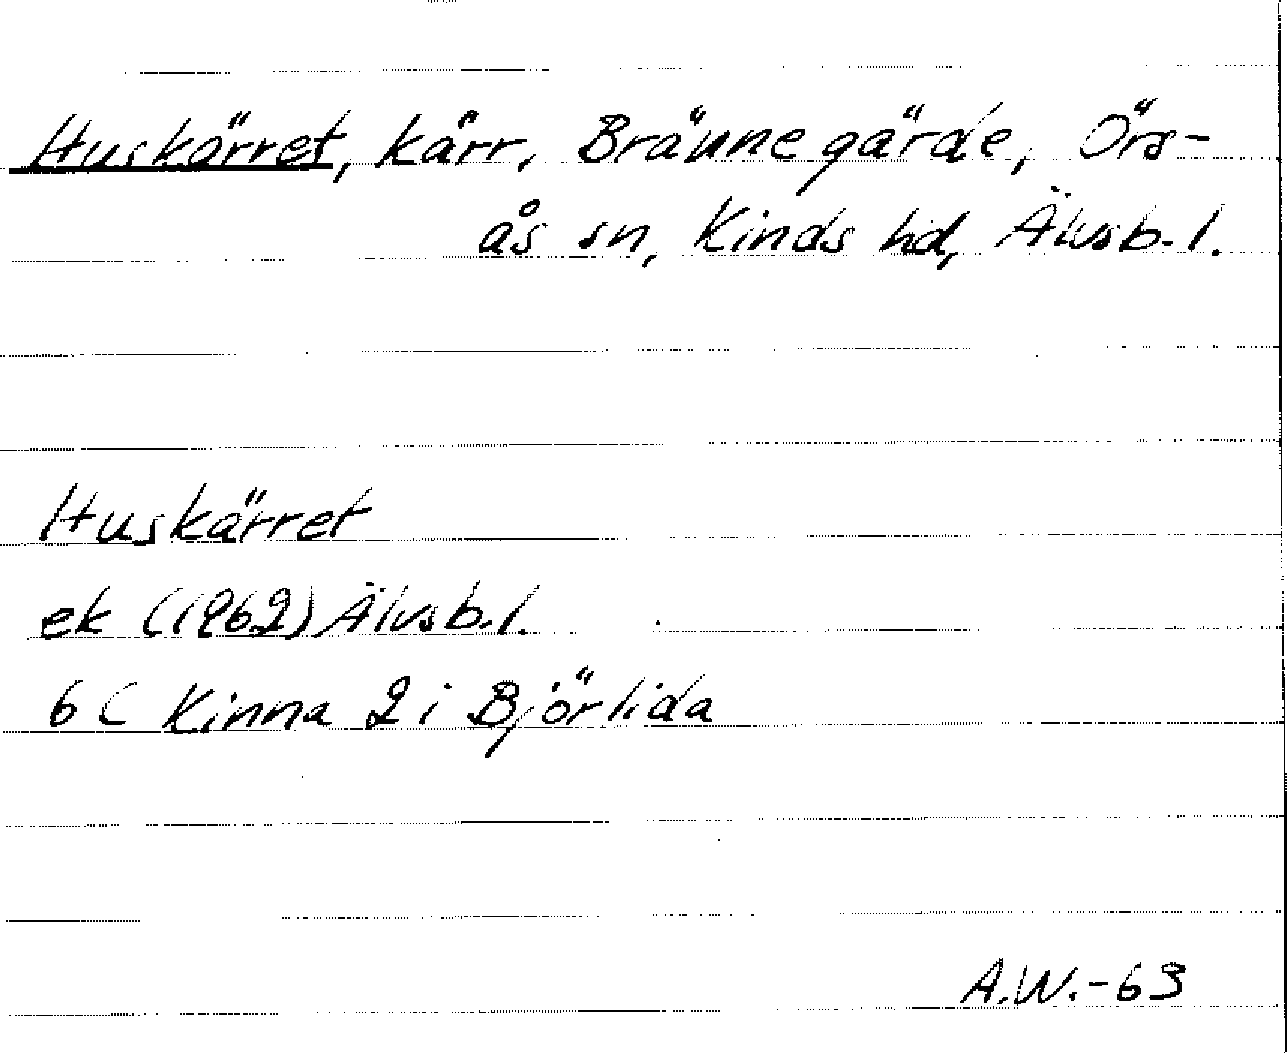 Huskärret, kärr, Brännegärde, Örs-
ås sn, Kinds hd, Älvsb. l.
Huskärret
ek (1962) Älvsb. l.
6 C Kinna 2 i Björlida
A.W.-63